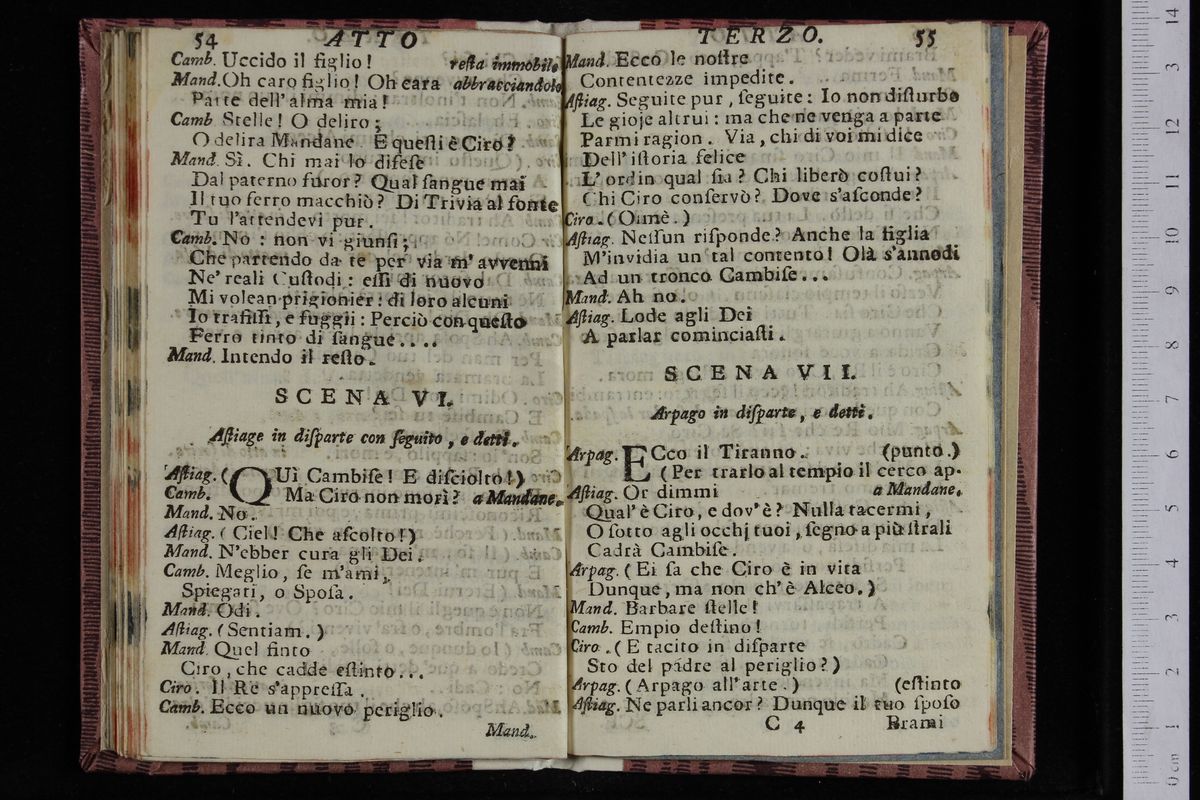 54 ATTO
Camb. Uccido il figlio! resta immobile
Mand. Oh caro figlio! Oh cara abbracciandolo
Parte dell'alma mia!
Camb Stelle! O deliro;
O delira Mandane E questi è Ciro?
Mand. Sì. Chi mai lo difese
Dal paterno furor? Qual sangue mai
Il tuo ferro macchiò? Di Trivia al fonte
Tu l'attendevi pur.
Camb. No: non vi giunsi;
Che partendo da te per via m'avvenni
Ne' reali Custodi: essi di nuovo
Mi volean prigionier: di loro alcuni
Io trafissi, e fuggii: Perciò con questo
Ferro tinto di sangue....
Mand. Intendo il resto.
SCENA VI.
Astiage in disparte con seguito, e detti.
Astiag. (OUì Cambise! E disciolto!)
Camb. Ma Ciro non morì? a Mandane.
Mand. No.
Astiag. (Ciel! Che ascolto!)
Mand. N'ebber cura gli Dei.
Camb. Meglio, se m'ami,
Spiegati, o Sposa.
Mand. Odi.
Astiag. (Sentiam.)
Mand. Quel finto
Ciro, che cadde estinto...
Ciro. Il Re s'appressa.
Camb. Ecco un nuovo periglio.
Mand.
TERZO. 55
Mand. Ecco le nostre
Contentezze impedite.
Astiag. Seguite pur, seguite: Io non disturbo
Le gioje altrui: ma che ne venga a parte
Parmi ragion. Via, chi di voi mi dice
Dell'istoria felice
L'ordin qual sia? Chi liberò costui?
Chi Ciro conservò? Dove s'asconde?
Ciro. (Oimè.)
Astiag. Nessun risponde? Anche la figlia
M'invidia un tal contento! Olà s'annodi
Ad un tronco Cambise...
Mand. Ah no.
Astiag. Lode agli Dei
A parlar cominciasti.
SCENA VII.
Arpago in disparte, e detti.
Arpag. ECco il Tiranno. (punto.)
(Per trarlo al tempio il cerco ap-
Astiag. Or dimmi a Mandane.
Qual'è Ciro, e dov'è? Nulla tacermi,
O sotto agli occhj tuoi, segno a più strali
Cadrà Cambise.
Arpag. (Ei sa che Ciro è in vita
Dunque, ma non ch'è Alceo.)
Mand. Barbare stelle!
Camb. Empio destino!
Ciro. (E tacito in disparte
Sto del padre al periglio?)
Arpag. (Arpago all'arte.) (estinto
Astiag. Ne parli ancor? Dunque il tuo sposo
C 4 Brami